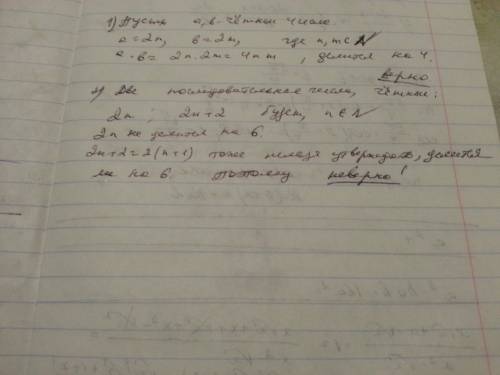 1) Пусть a, b - чётные числа.
a = 2n, b = 2m, где n, m ∈ N
a · b = 2n · 2m = 4nm, делится на 4.
верно
2) Две последовательные числа, чётные:
2n, 2n+2 будет, n ∈ N
2n не делится на 6.
2n+2 = 2(n+1) тоже нельзя утверждать, делится
ли на 6. поэтому неверно!